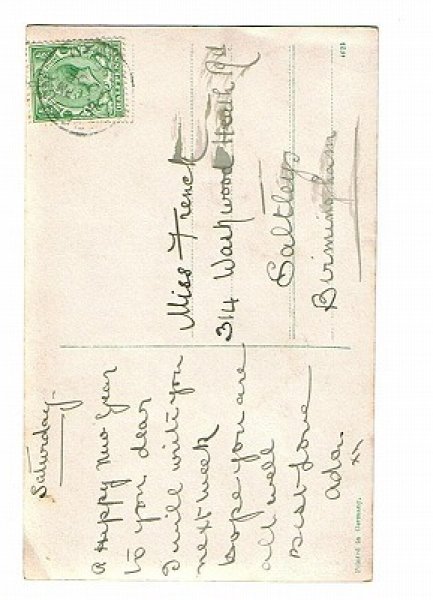 Saturday.
A Happy New Year
to you dear
I will write you
next week
hope you are
all well
Best love
Ada.
xx
Miss French
314 Washwood Heath Rd
Saltley
Birmingham
Printed in Germany.